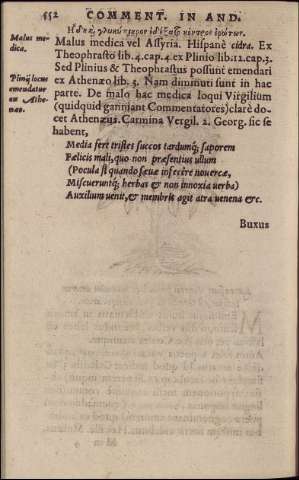 552 COMMENT. IN AND.
Malus medica vel Assyria. Hispanè cidra. Ex
Malus me-
dica.
Theophrasto lib. 4. cap. 4 ex Plinio lib. 12. cap. 3.
Sed Plinius & Theophrastus possunt emendari
Plinij locus
emendatur
ex Athe-
næo.
ex Athenæo lib. 3. Nam diminuti sunt in hac
parte. De malo hac medica loqui Virgilium
(quidquid ganniant Commentatores) clarè do-
cet Athenæus. Carmina Vergil. 2. Georg. sic se
habent,
Media fert tristes succos tardumq; saporem
Fælicis mali, quo non præsentius ullum
(Pocula si quando sæuæ infecere nouercæ,
Miscueruntq; herbas & non innoxia verba)
Auxilium venit, & membris agit atra venena &c.
Buxus